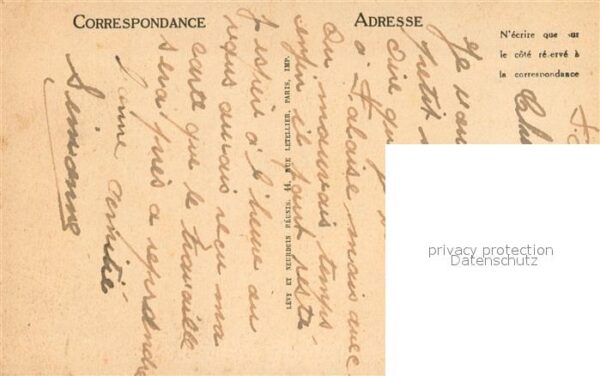 CORRESPONDANCE
ADRESSE
N'écrire que sur
le côté réservé à
la correspondance
LÉVY ET NEURDEIN RÉUNIS, 44, RUE LETELLIER, PARIS, IMP.
Je
petit
dire que
à l'aise mais avec
du mauvais temps
enfin il faut resté
J'espère à l'heure au
reçus aurais reçu ma
carte que le travaille
sera près a reprendre
bonne amitié
Simonne
privacy protection
Datenschutz